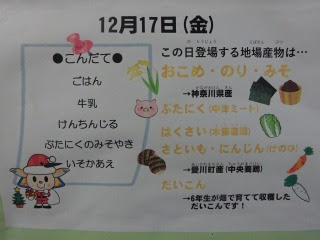 12月17日(金)
●こんだて●
ごはん
牛乳
けんちんじる
ぶたにくのみそやき
いそかあえ
この日登場する地場産物は…
おこめ・のり・みそ
→神奈川県産
ぶたにく(中津ミート)
はくさい
さといも・にんじん
→愛川町産(中央養鶏)
だいこん
→6年生が畑で育てて収穫した
だいこんです！